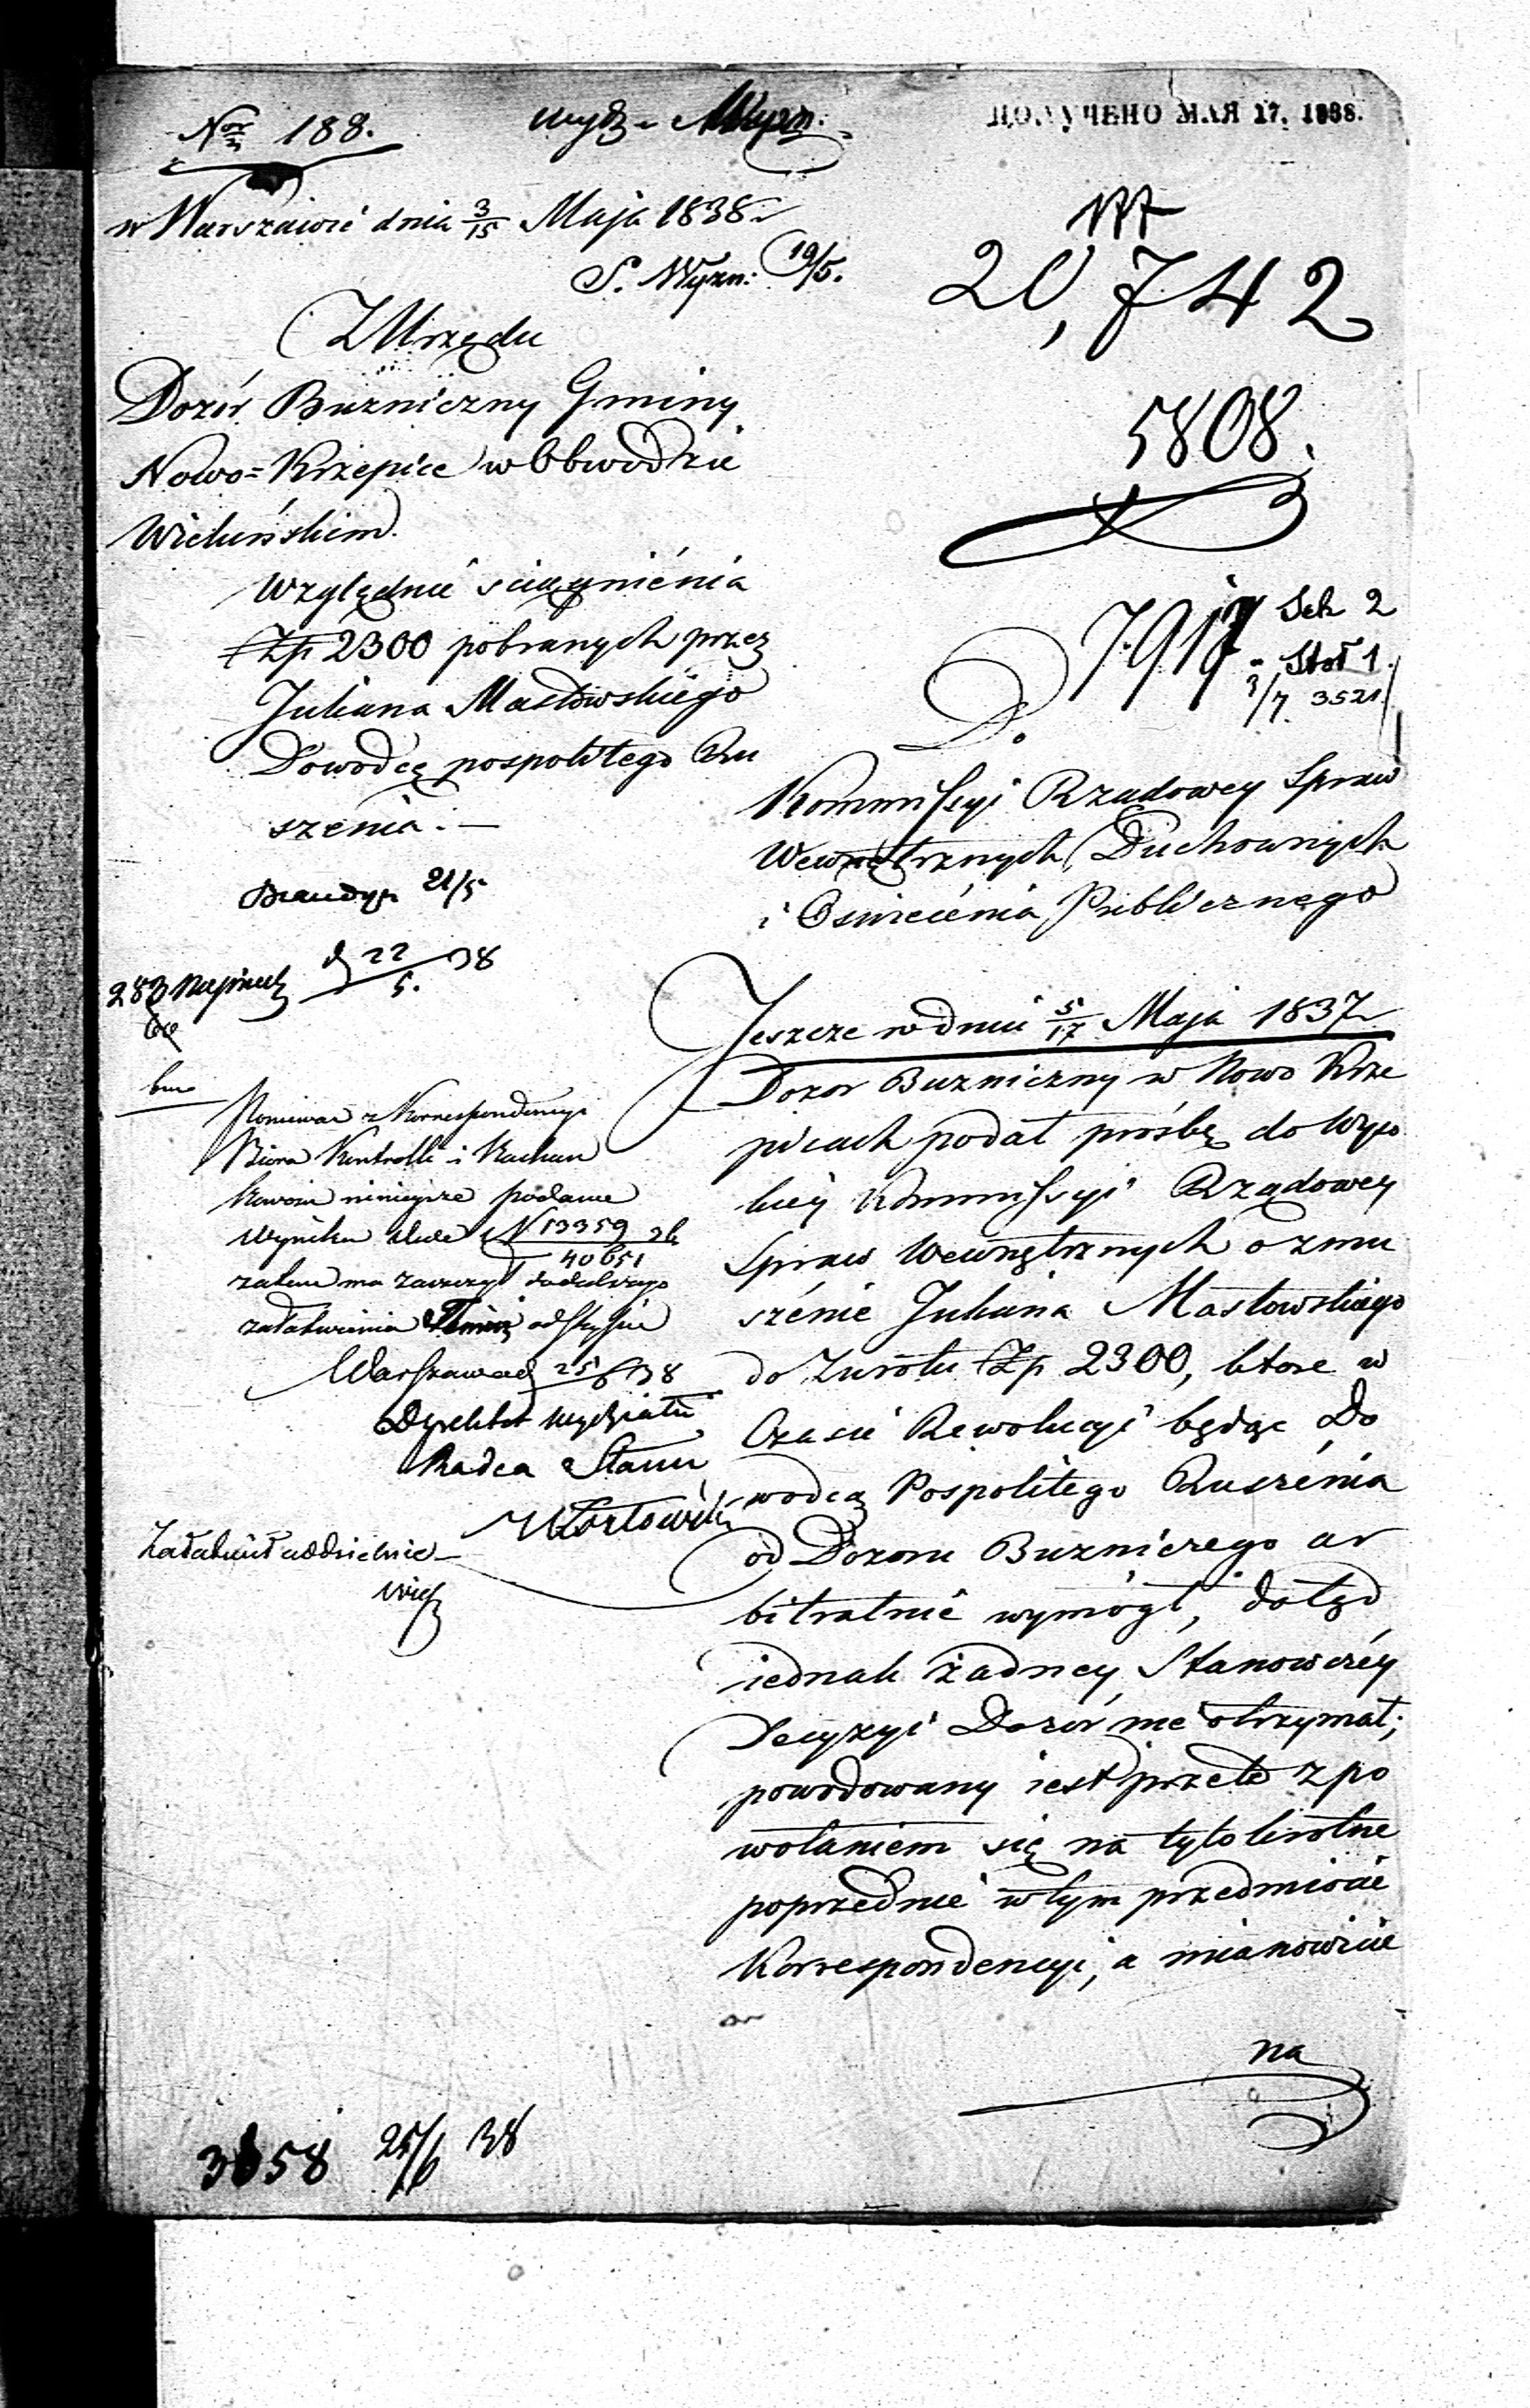 Nor 188.
wydz. Wyzn.
ПОЛУЧЕНО МАЯ 17. 1838.
w Warszawie dnia 3/15 Maja 1838 r
S. Wyzn: 19/5.
20,742
Z Urzędu
Dozór Buzniczny Gminy
5808.
Nowo=Krzepice w Obwodzie
Wieluńskim.
Względnie sciągnienia
Złp 2300 pobranych przez
Juliana Masłowskiego
Dowodcę pospolitego Ru
szenia.—
7917 Sek 2
Stoł 1.
3/7. 3521
Do
Kommissyi Rządowey Spraw
Wewnętrznych, Duchownych
i Oswiecenia Publicznego
21/5
d 22/5. 38
283
Jeszcze w dniu 5/17 Maja 1837 r
Dozor Buzniczny w Nowo Krze
picach podał prośbę do Wyso
kiey Kommissyi Rządowey
Spraw Wewnętrznych o zmu
szenie Juliana Masłowskiego
do zwrotu Złp 2300, ktore w
Czasie Rewolucyi będąc Do
wodcą Pospolitego Ruszenia
od Dozoru Buzniczego ar
bitralnie wymógł, dotąd
iednak żadney Stanowczéy
Decyzyi Dozór nie otrzymał;
powodowany iest przeto z po
wołaniem się na tylokrotne
poprzednie w tym przedmiocie
Korrespondencyi, a mianowicie
na
Poniewaz z Korrespondencyi
Biora Kontrolli i Rachun
kowości ninieysze podanie
wynikłe N 13359/40651
zatem ma zaszczyt do dalszego
załatwienia odstąpić
Warszawa d 25/6 38
Dyrektor Wydziału
Radca Stanu
Załatwił oddzielnie
3658 25/6 38